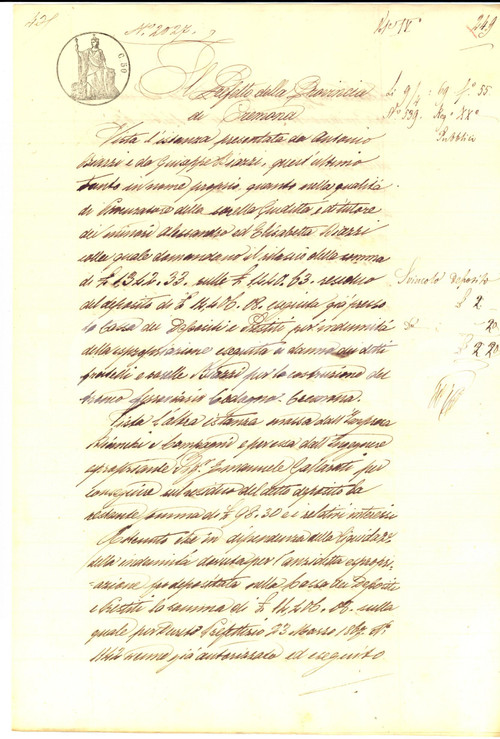 N.° 2027.
249
C. 50
Il Prefetto della Provincia
di Cremona
Vista l'istanza presentata da Antonio
e da Giuseppe quest'ultimo
tanto in nome proprio, quanto nella qualità
di Procuratore della sorella Giuditta e di tutore
dei minori Alessandro ed Elisabetta
colla quale domandano il rilascio della somma
di £ 1342.33. sulle £ 1440.63. residuo
del deposito di £ 14,406.08. eseguito già presso
la Cassa dei Depositi e Prestiti per indennità
della espropriazione eseguita a danno dei detti
fratelli e sorelle per la costruzione del
tronco ferroviario Codogno-Cremona.
Vista l'altra istanza mossa dall'Impresa
e Compagni e per essa dall'Ingegnere
espropriante Sig.r Emanuele per
conseguire sul residuo del detto deposito la
restante somma di £ 98.30 e i relativi interessi
Ritenuto che in dipendenza della
della indennità dovuta per l'anzidetta espropri-
azione fu depositata nella Cassa dei Depositi
e Prestiti la somma di £ 14,406.08. sulla
quale per Decreto Prefettizio 23 Marzo 1867 N.°
già autorizzato ed eseguito
Svincolo deposito
£ 2
20
£ 2 20